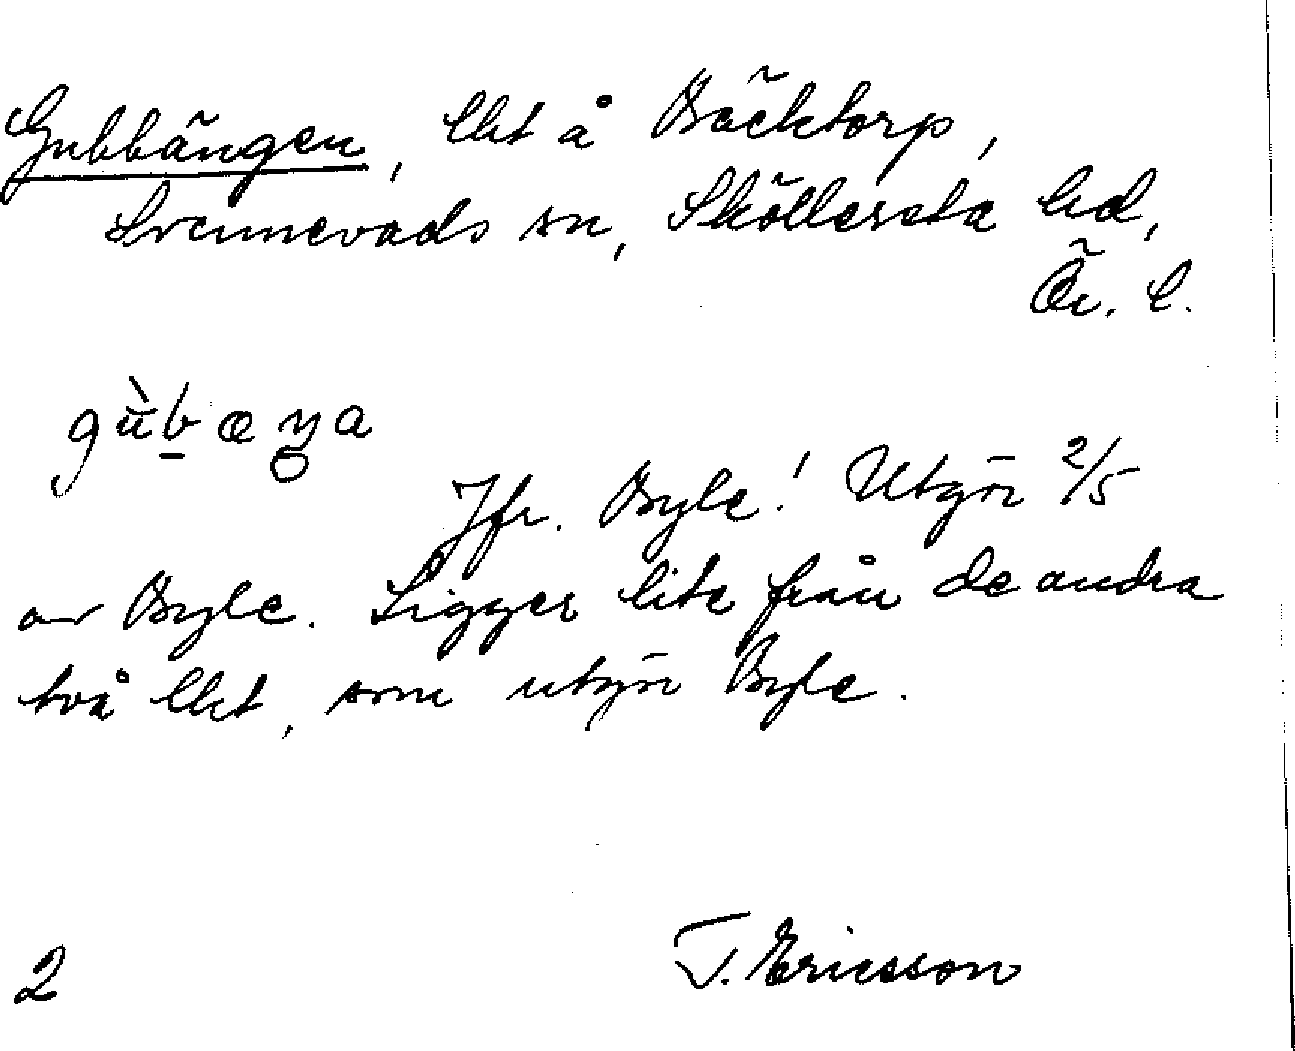 Gubbängen, lht å Bäcktorp,
Svennevads sn, Sköllersta hd,
Ör. l.
gùbæŋa
Jfr. Byle! Utgör 2/5
av Byle. Ligger lite från de andra
två lht, som utgör Byle.
T. Ericsson
2